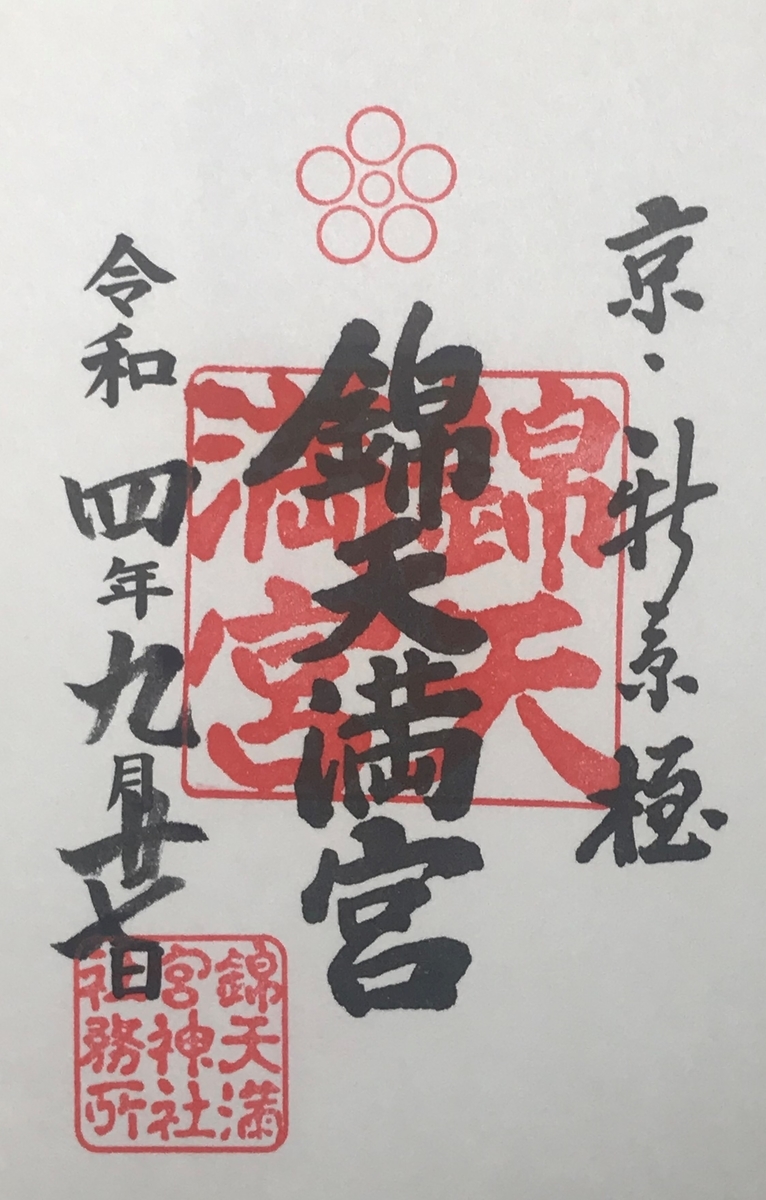 京・新京極
錦天満宮
令和四年九月廿七日
錦天
満宮
錦天満
宮神社
社務所